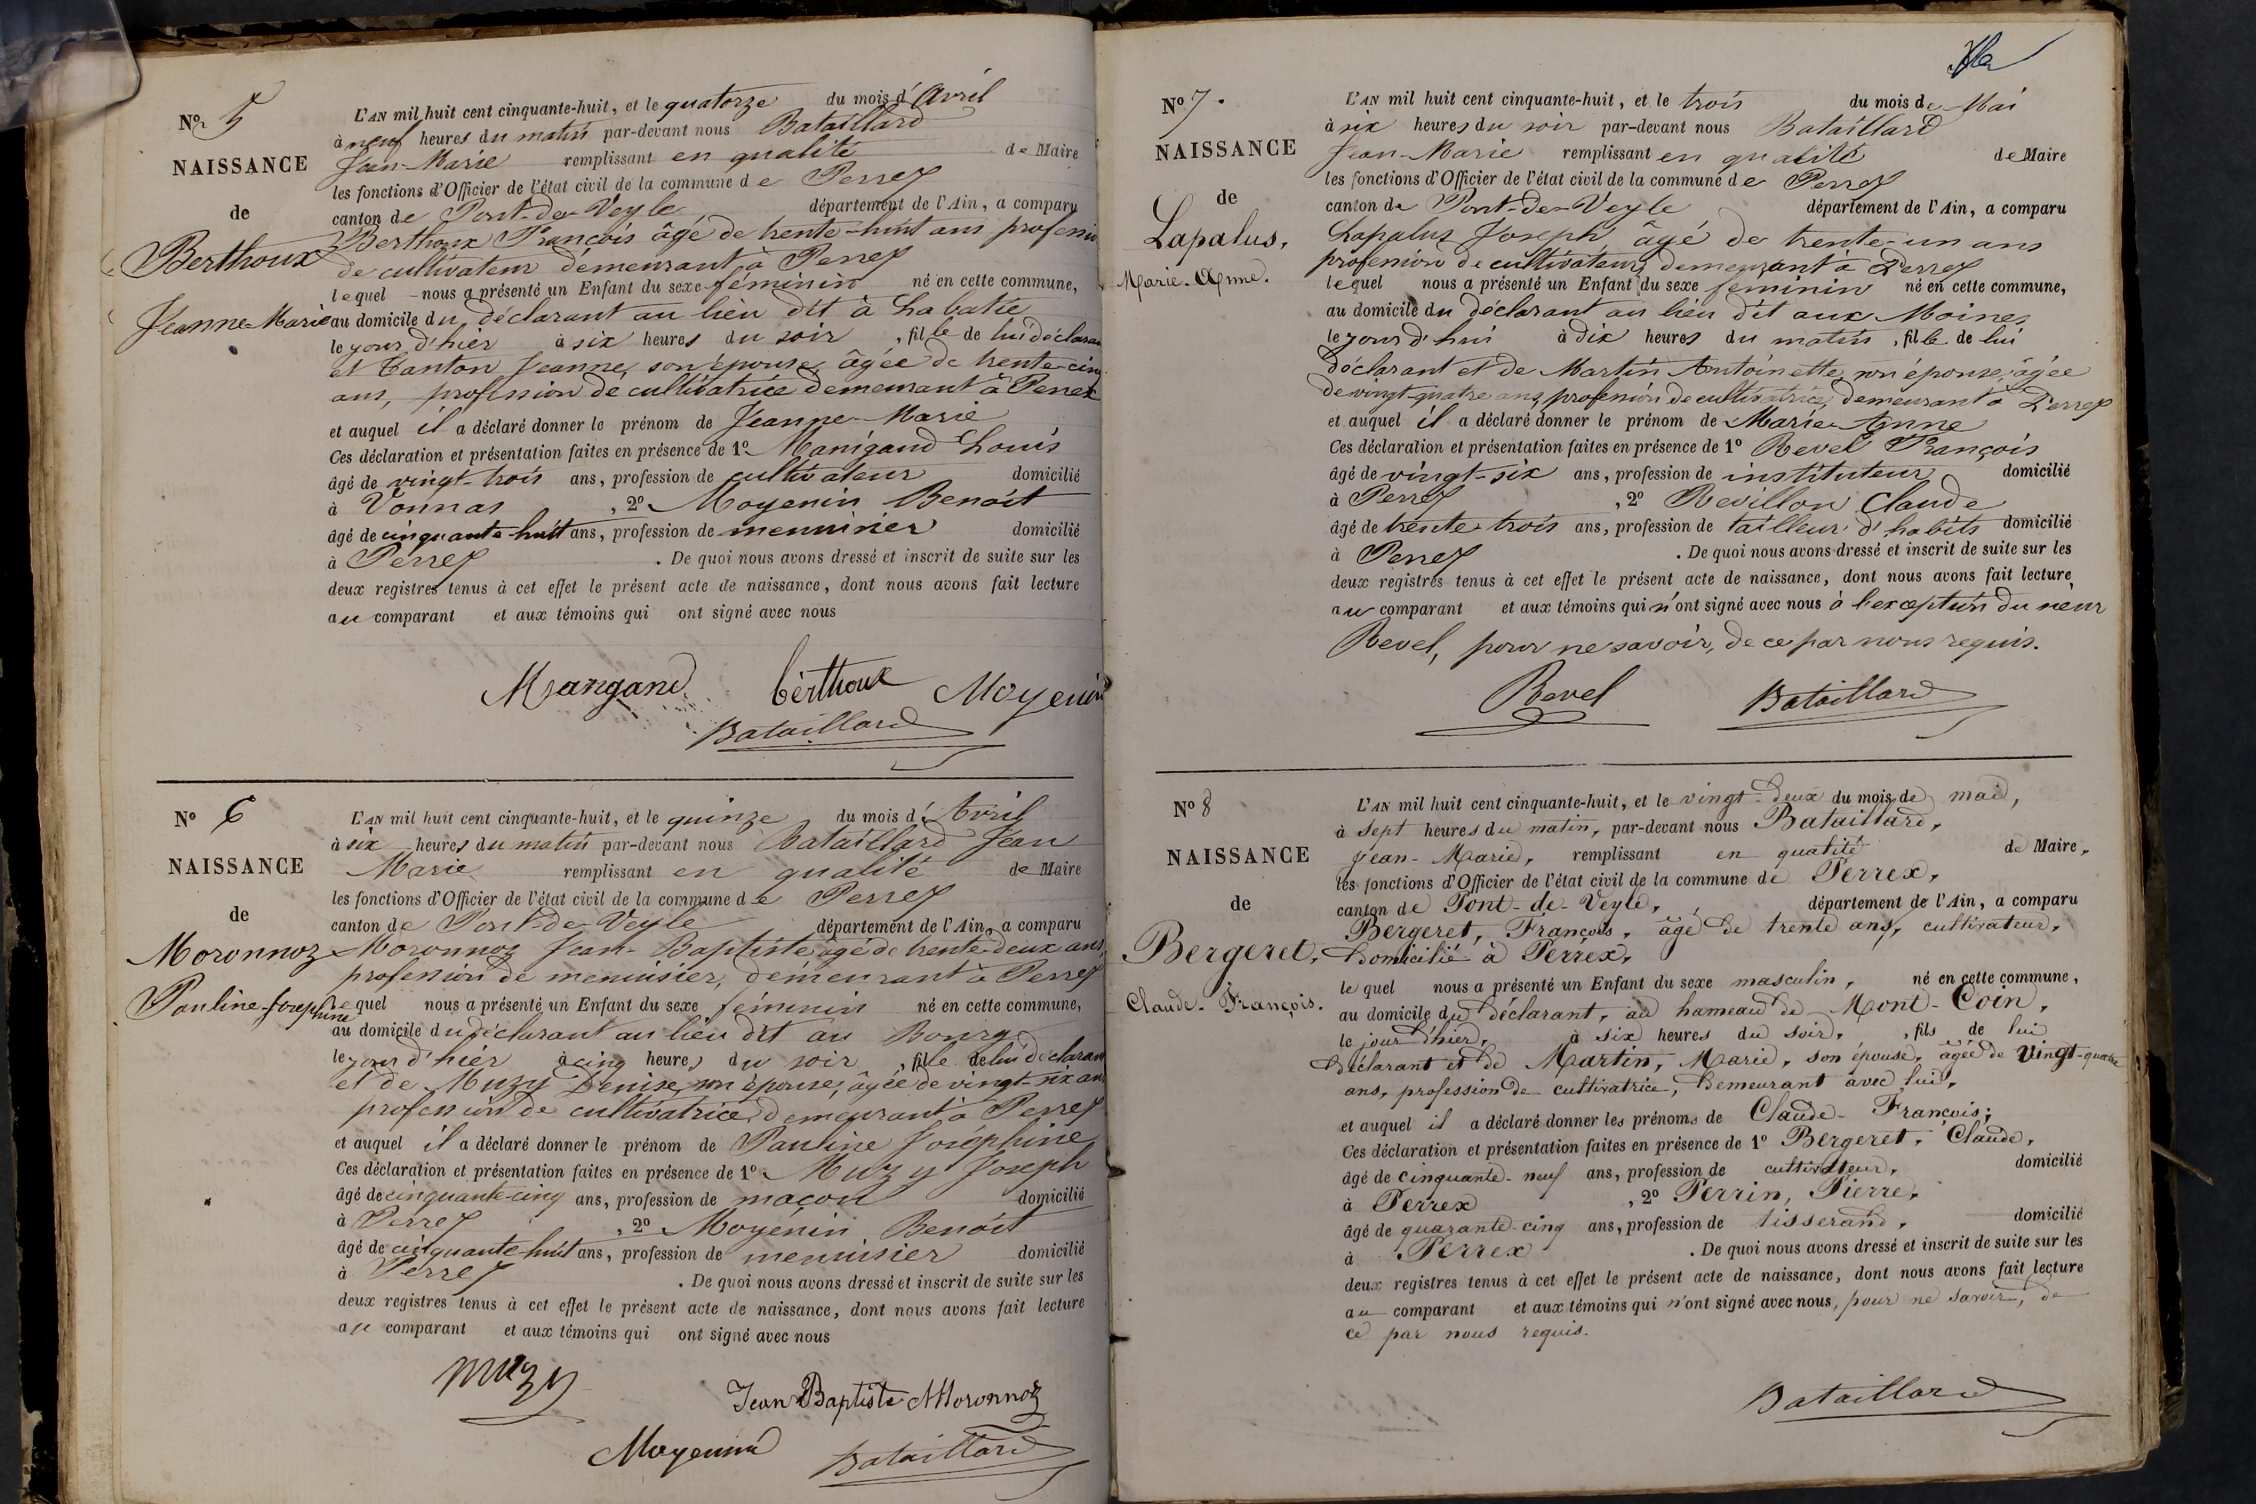 Nº 5
NAISSANCE
de
Berthoux
Jeanne-Marie
L'AN mil huit cent cinquante-huit, et le quatorze du mois d'Avril
à neuf heures du matin par-devant nous Bataillard
Jean-Marie remplissant en qualité de Maire
les fonctions d'Officier de l'état civil de la commune de Perrex
canton de Pont-de-Veyle département de l'Ain, a comparu
Berthoux François âgé de trente-huit ans profession
de cultivateur demeurant à Perrex
lequel nous a présenté un Enfant du sexe féminin né en cette commune,
au domicile du déclarant au lieu dit à Labatie
le jour d'hier à six heures du soir, fille de lui déclarant
et Canton Jeanne, son épouse, âgée de trente-cinq
ans, profession de cultivatrice demeurant à Perrex
et auquel il a déclaré donner le prénom de Jeanne-Marie
Ces déclaration et présentation faites en présence de 1º Manigand Louis
âgé de vingt-trois ans, profession de cultivateur domicilié
à Vonnas, 2º Moyenin Benoît
âgé de cinquante-huit ans, profession de menuisier domicilié
à Perrex. De quoi nous avons dressé et inscrit de suite sur les
deux registres tenus à cet effet le présent acte de naissance, dont nous avons fait lecture
au comparant et aux témoins qui ont signé avec nous
Mangand berthoux Moyenin
Bataillard
Nº 6
NAISSANCE
de
Moronnoz
Pauline-Josephine
L'AN mil huit cent cinquante-huit, et le quinze du mois d'Avril
à six heures du matin par-devant nous Bataillard Jean
Marie remplissant en qualité de Maire
les fonctions d'Officier de l'état civil de la commune de Perrex
canton de Pont-de-Veyle département de l'Ain, a comparu
Moronnoz Jean-Baptiste âgé de trente-deux ans,
profession de menuisier, demeurant à Perrex
lequel nous a présenté un Enfant du sexe féminin né en cette commune,
au domicile du déclarant au lieu dit au Bourg
le jour d'hier à cinq heures du soir, fille de lui déclarant
et de Muzy Denise, son épouse, âgée de vingt-six ans
profession de cultivatrice, demeurant à Perrex
et auquel il a déclaré donner le prénom de Pauline Joséphine
Ces déclaration et présentation faites en présence de 1º Muzy Joseph
âgé de cinquante-cinq ans, profession de maçon domicilié
à Perrex, 2º Moyénin Benoît
âgé de cinquante-huit ans, profession de menuisier domicilié
à Perrex. De quoi nous avons dressé et inscrit de suite sur les
deux registres tenus à cet effet le présent acte de naissance, dont nous avons fait lecture
au comparant et aux témoins qui ont signé avec nous
muzy
Jean Baptiste Moronnoz
Moyenin Bataillard
Nº 7.
NAISSANCE
de
Lapalus,
Marie-Anne.
L'AN mil huit cent cinquante-huit, et le trois du mois de Mai
à six heures du soir par-devant nous Bataillard
Jean-Marie remplissant en qualité de Maire
les fonctions d'Officier de l'état civil de la commune de Perrex
canton de Pont-de-Veyle département de l'Ain, a comparu
Lapalus Joseph âgé de trente-un ans
profession de cultivateur, demeurant à Perrex
lequel nous a présenté un Enfant du sexe féminin né en cette commune,
au domicile du déclarant au lieu dit aux Moines
le jourd'hui à dix heures du matin, fille de lui
déclarant et de Martin Antoinette, son épouse, âgée
de vingt-quatre ans, profession de cultivatrice, demeurant à Perrex
et auquel il a déclaré donner le prénom de Marie-Anne
Ces déclaration et présentation faites en présence de 1º Revel François
âgé de vingt-six ans, profession de instituteur domicilié
à Perrex, 2º Revillon Claude
âgé de trente-trois ans, profession de tailleur d'habits domicilié
à Perrex. De quoi nous avons dressé et inscrit de suite sur les
deux registres tenus à cet effet le présent acte de naissance, dont nous avons fait lecture
au comparant et aux témoins qui n'ont signé avec nous à l'exception du sieur
Revel, pour ne savoir, de ce par nous requis.
Revel Bataillard
Nº 8
NAISSANCE
de
Bergeret,
Claude-François.
L'AN mil huit cent cinquante-huit, et le vingt-deux du mois de mai,
à sept heures du matin, par-devant nous Bataillard,
Jean-Marie, remplissant en qualité de Maire,
les fonctions d'Officier de l'état civil de la commune de Perrex,
canton de Pont-de-Veyle, département de l'Ain, a comparu
Bergeret, François, âgé de trente ans, cultivateur,
domicilié à Perrex,
lequel nous a présenté un Enfant du sexe masculin, né en cette commune,
au domicile du déclarant, au hameau de Mont-Coin,
le jour d'hier, à six heures du soir, fils de lui
déclarant et de Martin, Marie, son épouse, âgée de vingt-quatre
ans, profession de cultivatrice, demeurant avec lui,
et auquel il a déclaré donner les prénoms de Claude-François;
Ces déclaration et présentation faites en présence de 1º Bergeret, Claude,
âgé de cinquante-neuf ans, profession de cultivateur, domicilié
à Perrex, 2º Perrin, Pierre,
âgé de quarante-cinq ans, profession de tisserand, domicilié
à Perrex. De quoi nous avons dressé et inscrit de suite sur les
deux registres tenus à cet effet le présent acte de naissance, dont nous avons fait lecture
au comparant et aux témoins qui n'ont signé avec nous, pour ne savoir, de
ce par nous requis.
Bataillard